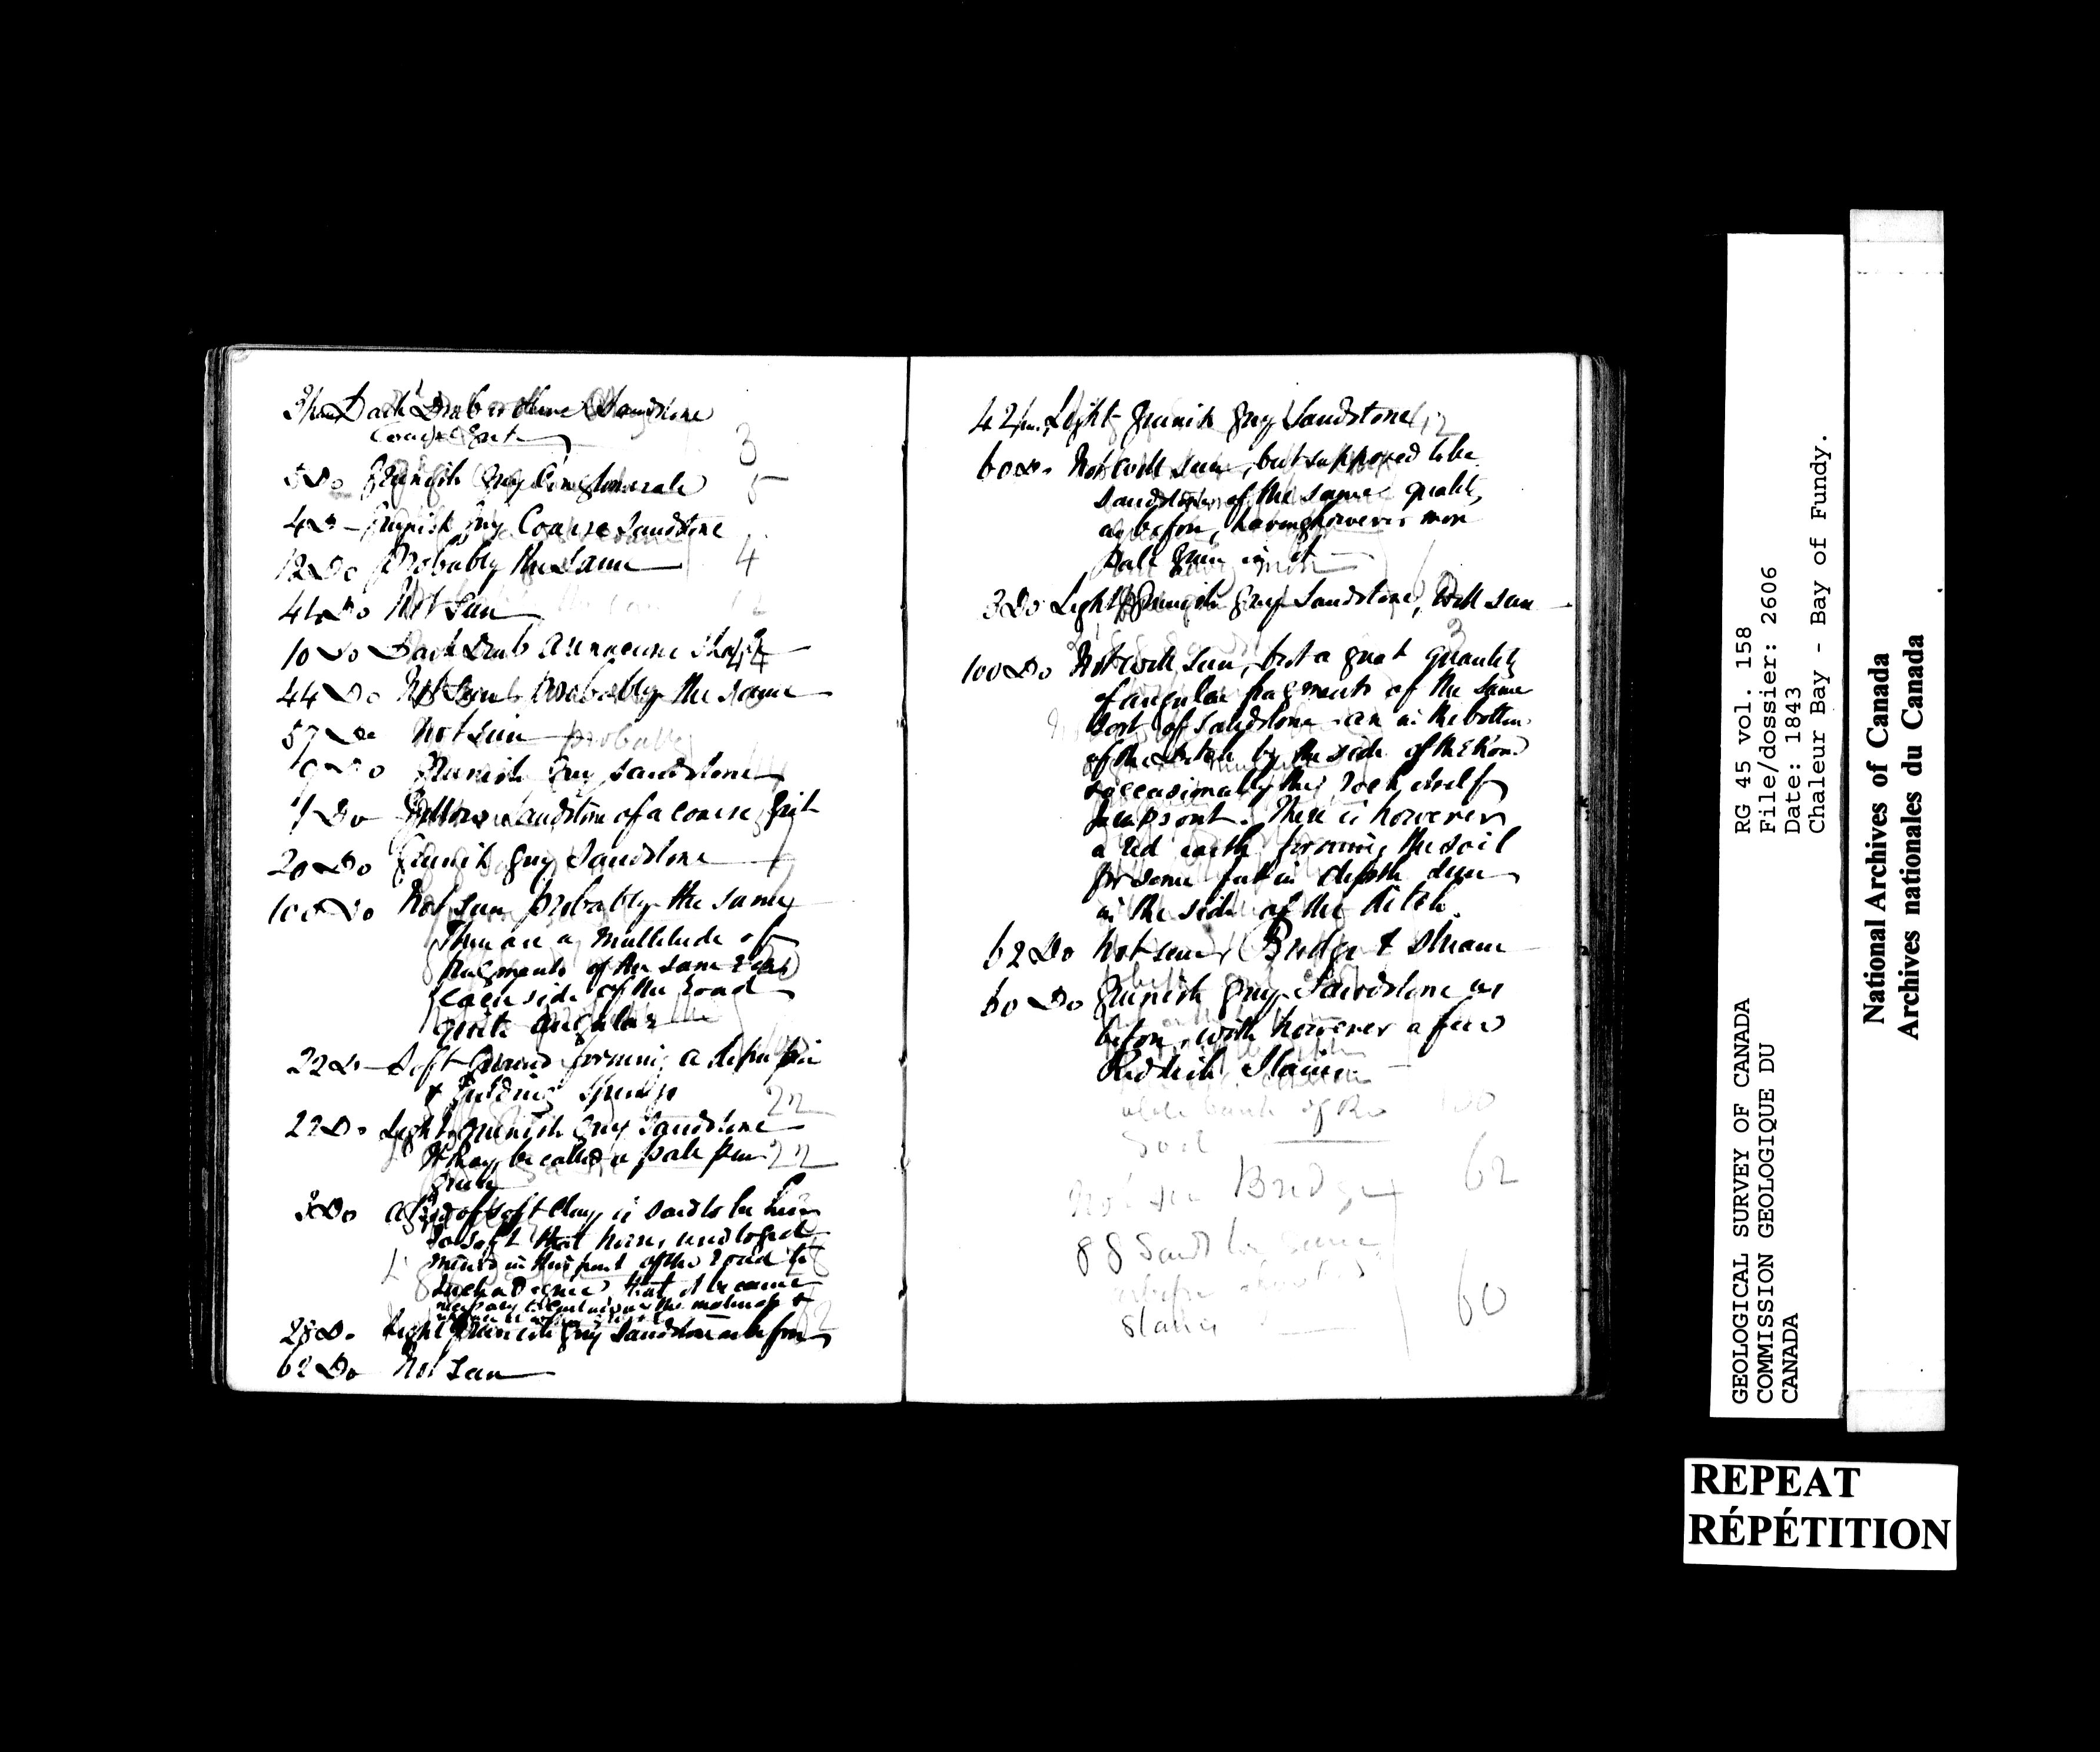 Dark Drab or Olive Sandstone
Coarse Grit
3
5 Do Greenish Grey Conglomerate 5
4 Do Greenish Grey Coarse Sandstone
12 Do Probably the Same 4
44 Do Not Seen
10 Do Dark Drab Arenaceous Shale
44 Do Not Seen Probably the same
57 Do Not seen probably
9 Do Greenish Grey Sandstone
1 Do Yellow Sandstone of a coarse Grit
20 Do Greenish Grey Sandstone
100 Do Not Seen Probably the same
There are a multitude of
fragments of the same rock
each side of the road
quite angular
22 Do Soft Ground forming a
& yielding Springs 22
22 Do Light greenish Grey Sandstone
It may be called a pale 22
green
3 Do A of soft Clay is said to be here
so soft that horses and
in this part of the road to
such a degree that it became
necessary to the
28 Do Light Greenish Grey Sandstone as before
62 Do Not Seen
42 Light Greenish Grey Sandstone 42
60 Do Not well seen, but supposed to be
Sandstone of the same quality
as before, having however more
Pale Green in it
3 Do Light Greenish Grey Sandstone, Well seen
3
100 Do Not well seen, but a great quantity
of angular fragments of the same
sort of Sandstone are in the bottom
of the ditch by the side of the Road
& occasionally the rock itself
peeps out. There is however
a red earth forming the soil
for some feet in depth seen
in the side of the ditch.
62 Do Not seen Bridge & stream
60 Do Greenish Grey Sandstone as
before, with however a few
Reddish Stains
bank of the 100
Soil
Not seen Bridge 62
88 Sandstone same
as before
Stains 60
RG 45 vol. 158
File/dossier: 2606
Date: 1843
Chaleur Bay - Bay of Fundy.
GEOLOGICAL SURVEY OF CANADA
COMMISSION GEOLOGIQUE DU
CANADA
National Archives of Canada
Archives nationales du Canada
REPEAT
RÉPÉTITION